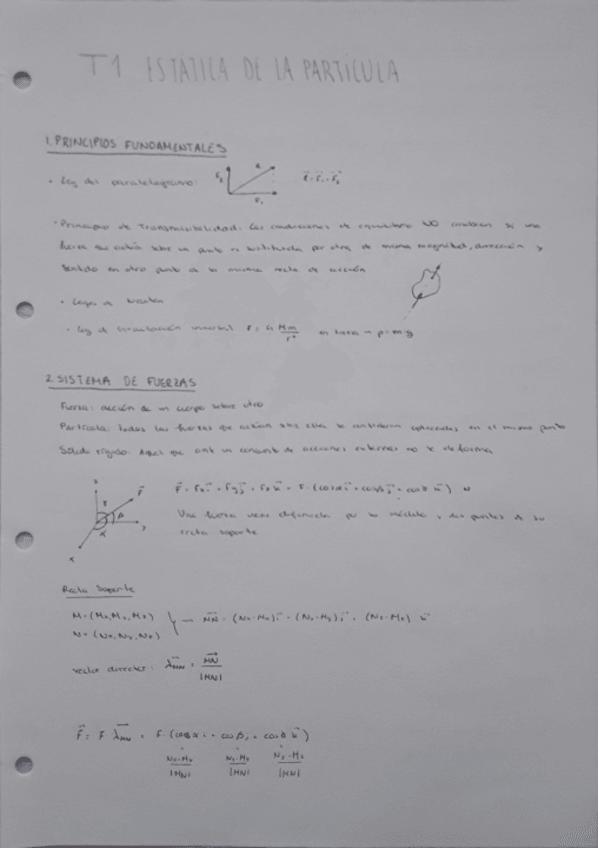 T1 ESTÁTICA DE LA PARTÍCULA
1. PRINCIPIOS FUNDAMENTALES
• Ley del paralelogramo:
• Principio de Transmisibilidad: Las condiciones de equilibrio NO cambian si una
fuerza que actúa sobre un punto es sustituida por otra de misma magnitud, dirección y
sentido en otro punto de la misma recta de acción
• Leyes de Newton
• Ley de Gravitación universal F = G Mm/r² en tierra → p = m·g
2. SISTEMA DE FUERZAS
Fuerza: acción de un cuerpo sobre otro
Partícula: todas las fuerzas que actúan sobre ella se consideran aplicadas en el mismo punto
Sólido rígido: Aquel que ante un conjunto de acciones externas no se deforma
Una fuerza viene definida por su módulo y dos puntos de su
recta soporte
Recta Soporte
M = (Mx, My, Mz)
N = (Nx, Ny, Nz)
vector director: λMN = MN/|MN|